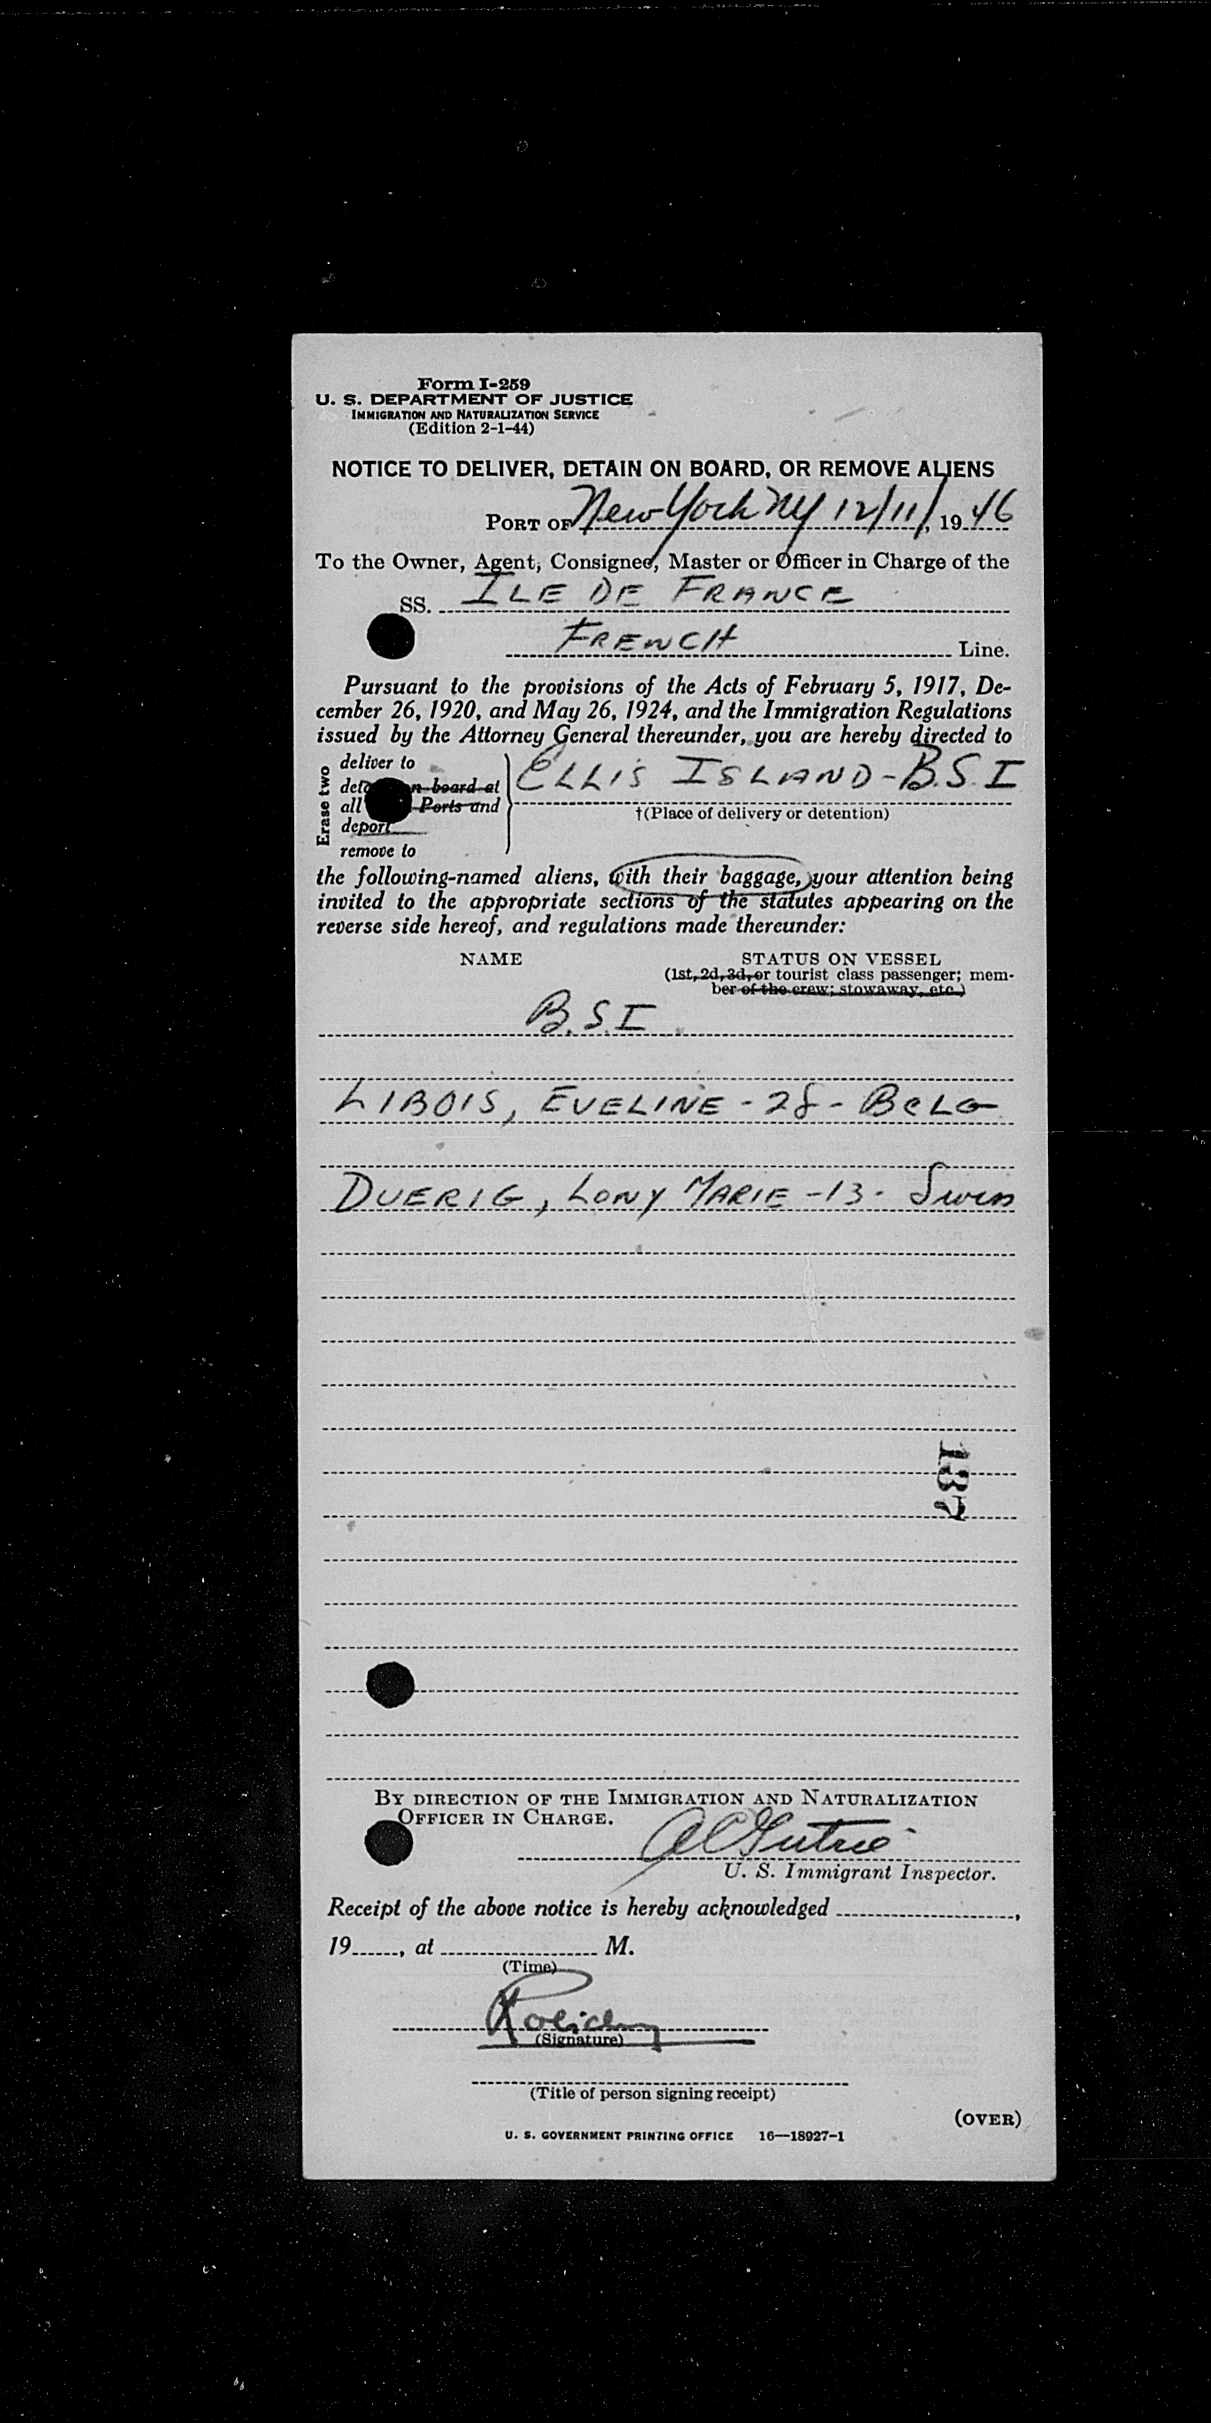 Form I-259
U. S. DEPARTMENT OF JUSTICE
IMMIGRATION AND NATURALIZATION SERVICE
(Edition 2-1-44)
NOTICE TO DELIVER, DETAIN ON BOARD, OR REMOVE ALIENS
PORT OF New York NY 12/11/, 1946
To the Owner, Agent, Consignee, Master or Officer in Charge of the
SS. ILE DE FRANCE
FRENCH Line.
Pursuant to the provisions of the Acts of February 5, 1917, De-
cember 26, 1920, and May 26, 1924, and the Immigration Regulations
issued by the Attorney General thereunder, you are hereby directed to
Erase two
deliver to
n board at
all Ports and
deport
remove to
ELLIS ISLAND - B.S.I
†(Place of delivery or detention)
the following-named aliens, with their baggage, your attention being
invited to the appropriate sections of the statutes appearing on the
reverse side hereof, and regulations made thereunder:
NAME STATUS ON VESSEL
(1st, 2d, 3d, or tourist class passenger; mem-
ber of the crew; stowaway, etc.)
B.S.I
LIBOIS, EVELINE - 28 - BELG
DUERIG, LONY MARIE - 13 - Swiss
137
BY DIRECTION OF THE IMMIGRATION AND NATURALIZATION
OFFICER IN CHARGE.
U. S. Immigrant Inspector.
Receipt of the above notice is hereby acknowledged ,
19 , at M.
(Time)
(Signature)
(Title of person signing receipt)
(OVER)
U. S. GOVERNMENT PRINTING OFFICE 16—18927-1